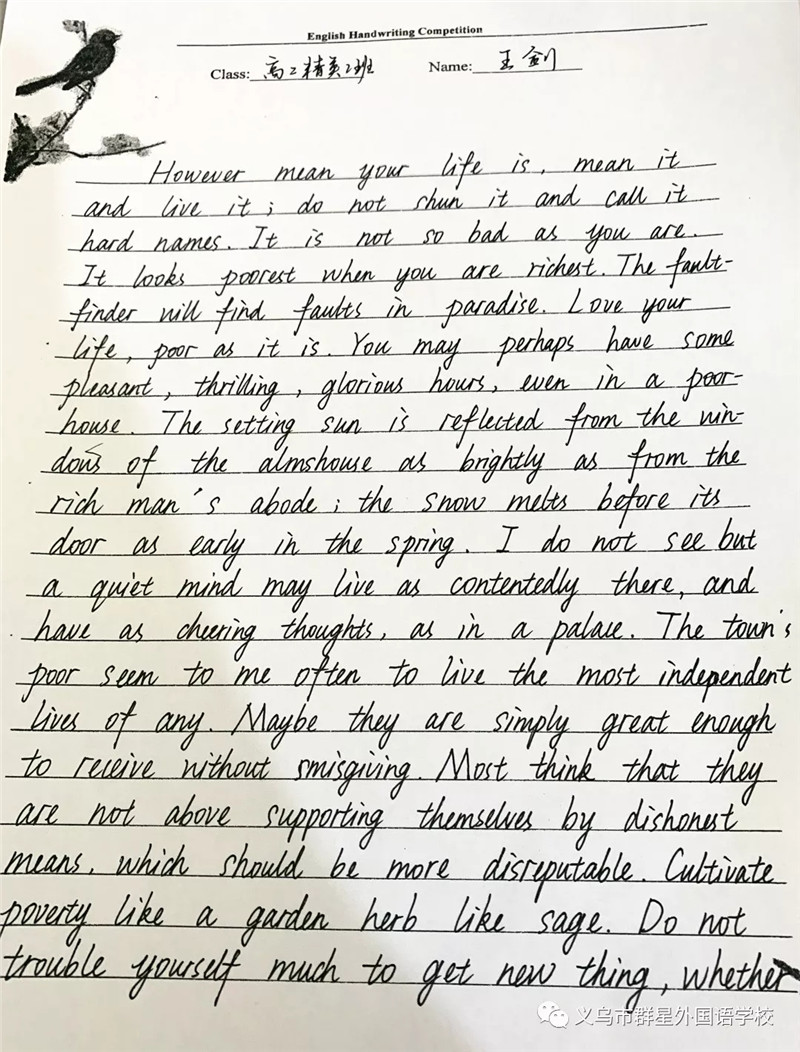 English Handwriting Competition
Class: 高二精英2班 Name: 王剑
However mean your life is, mean it
and live it; do not shun it and call it
hard names. It is not so bad as you are.
It looks poorest when you are richest. The fault-
finder will find faults in paradise. Love your
life, poor as it is. You may perhaps have some
pleasant, thrilling, glorious hours, even in a poor-
house. The setting sun is reflected from the win-
dows of the almshouse as brightly as from the
rich man's abode; the snow melts before its
door as early in the spring. I do not see but
a quiet mind may live as contentedly there, and
have as cheering thoughts, as in a palace. The town's
poor seem to me often to live the most independent
lives of any. Maybe they are simply great enough
to receive without smisgiving. Most think that they
are not above supporting themselves by dishonest
means, which should be more disreputable. Cultivate
poverty like a garden herb like sage. Do not
trouble yourself much to get new thing, whether
义乌市群星外国语学校